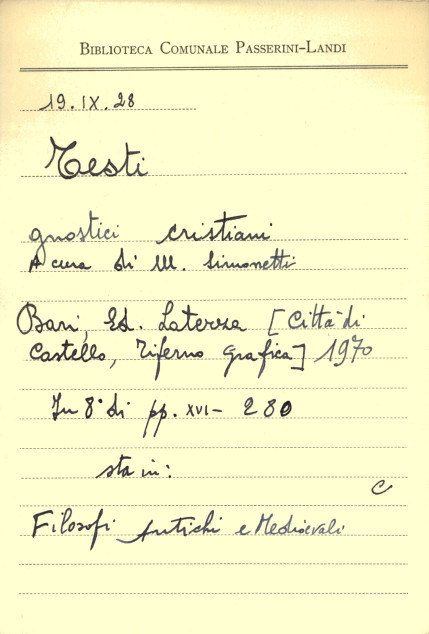 BIBLIOTECA COMUNALE PASSERINI-LANDI
19.IX.28
Testi
gnostici cristiani
A cura di M. Simonetti
Bari, Ed. Laterza [Città di
Castello, Tiferno Grafica] 1970
In 8° di pp. XVI- 280
sta in:
C
Filosofi Antichi e Medioevali